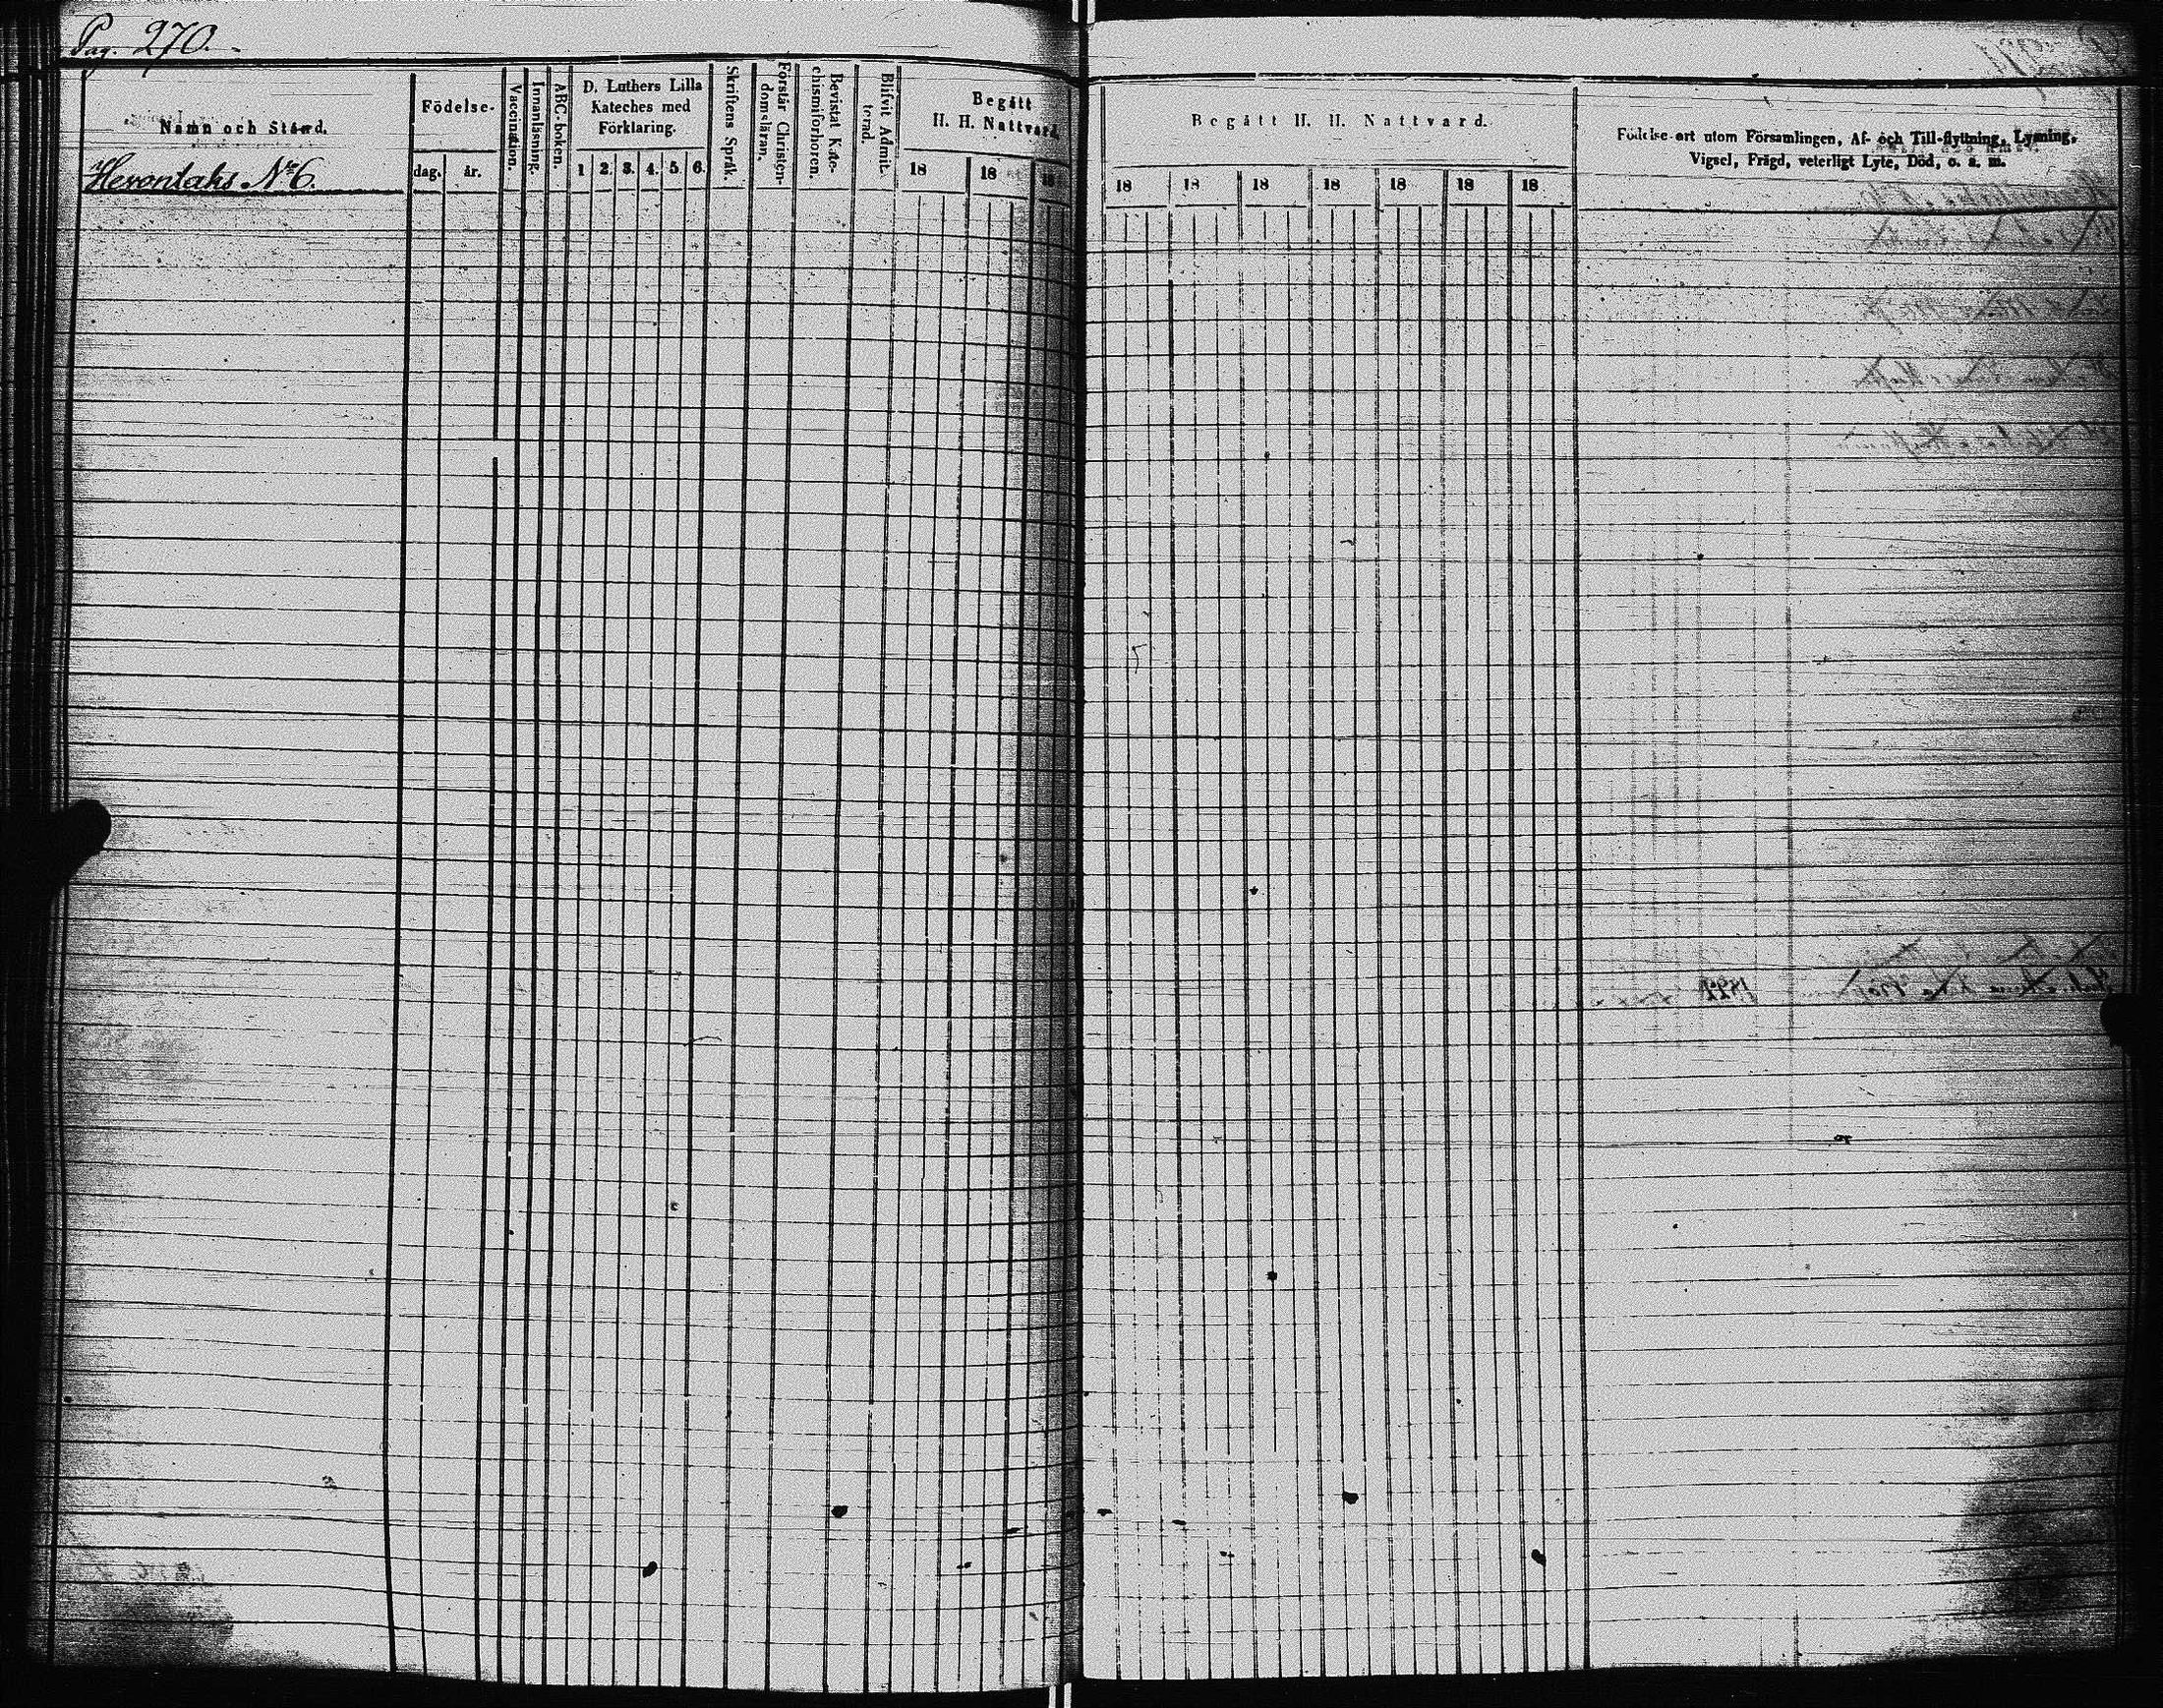 Pag. 270.
Namn och Stånd.
Födelse-
dag.
år.
Vaccination.
Innanläsning.
ABC-boken.
D. Luthers Lilla
Kateches med
Förklaring.
1 2. 3. 4. 5. 6.
Skriftens Språk.
Förstår Christen-
domsläran.
Bevistat Kate-
chismiförhören.
Blifvit Admit-
terad.
Begått
H. H. Nattvard.
18 18 18
Herontaks No 6.
Begått H. H. Nattvard.
18 18 18 18 18 18 18
Födelse-ort utom Församlingen, Af- och Till-flyttning, Lysning,
Vigsel, Frägd, veterligt Lyte, Död, o. s. m.